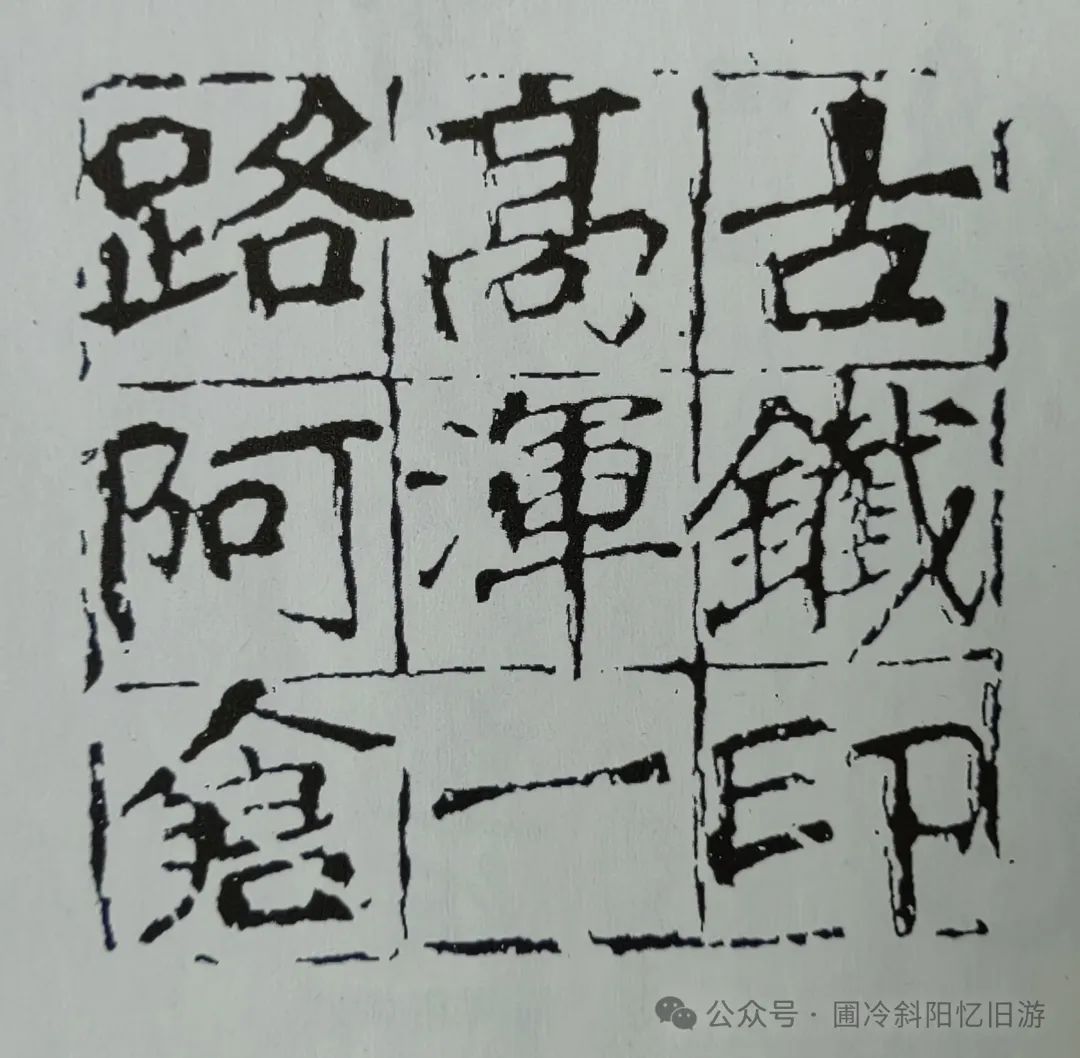 古鐵印
高渾一
路阿倉
公众号 · 圃冷斜阳忆旧游